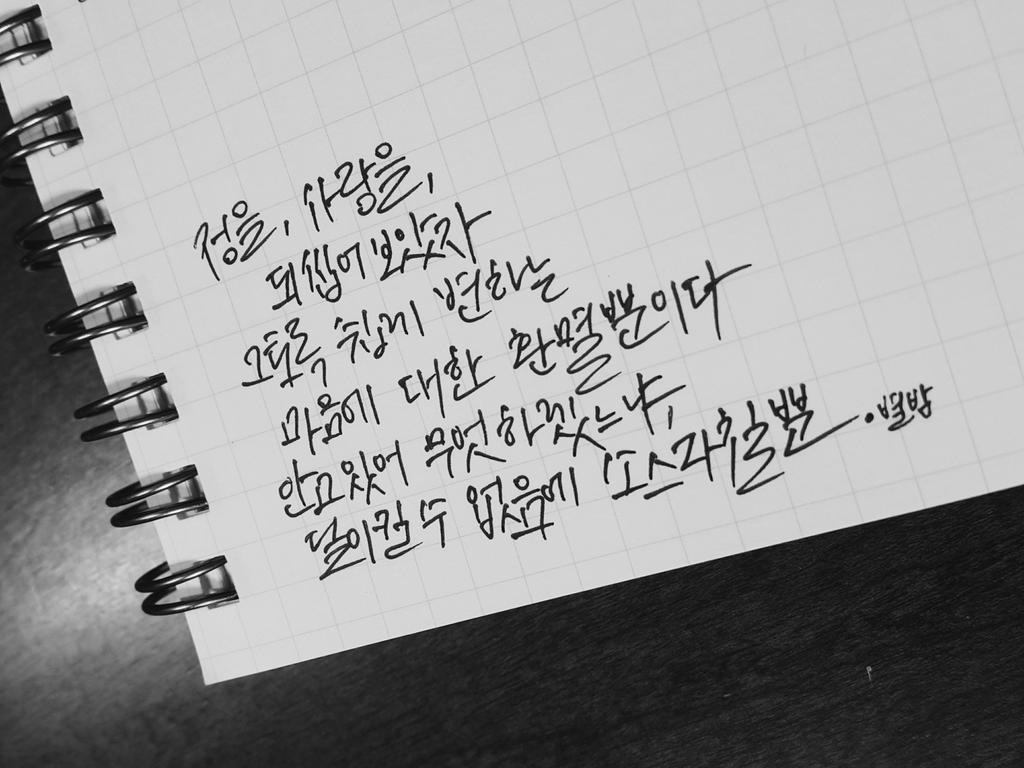 정을, 사랑을,
되씹어보았자
그토록 쉽게 변하는
마음에 대한 환멸뿐이다
안고있어 무엇하겠느냐,
덜이킬수 없음에 소스라칠뿐
·별밤